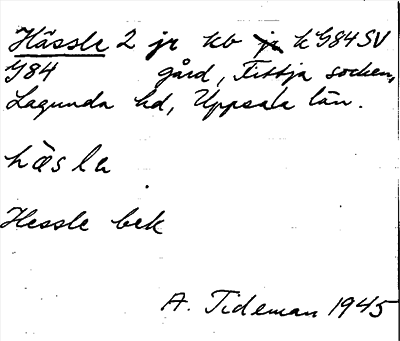 Hässle 2 jr kv jr k G84SV
G84 gård, Fittja socken,
Lagunda hd, Uppsala län.
häsla
Hessle bek
A. Tideman 1945